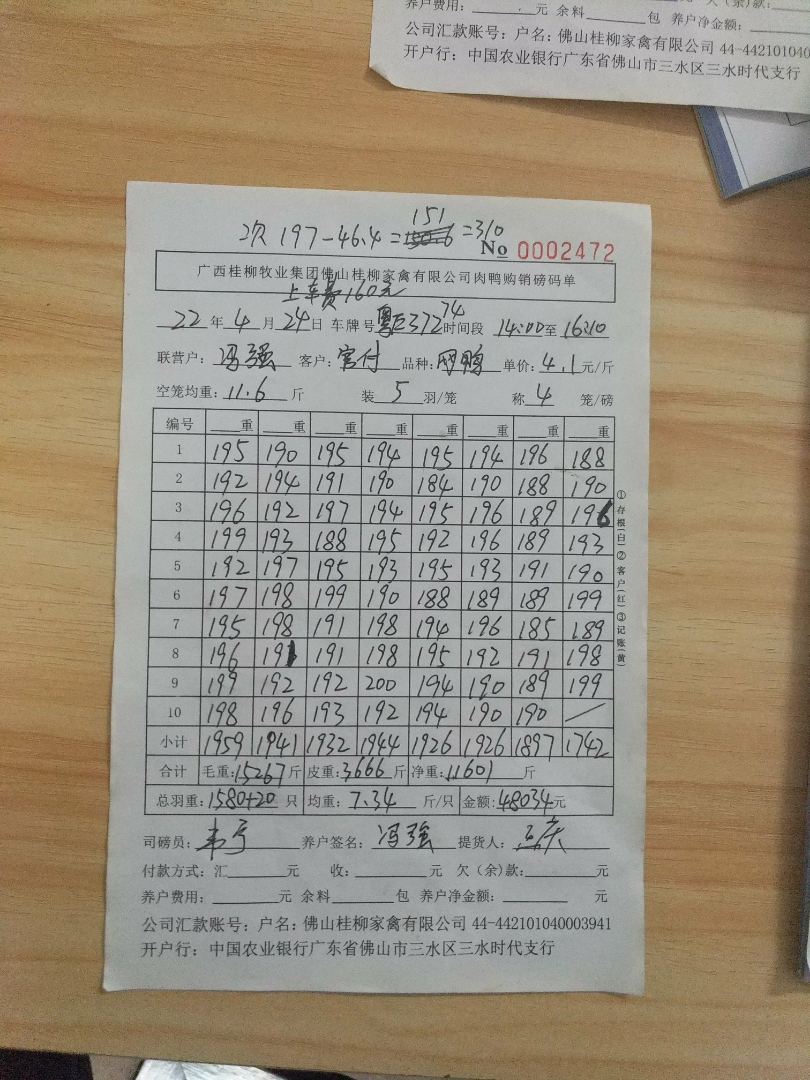 养户费用:____元 余料____包 养户净金额:
公司汇款账号：户名：佛山桂柳家禽有限公司 44-4421010400
开户行：中国农业银行广东省佛山市三水区三水时代支行
151
次 197-46.4= =310
No 0002472
广西桂柳牧业集团佛山桂柳家禽有限公司肉鸭购销磅码单
上车费160元
22年4月24日 车牌号 37274 时间段 14:00至16:10
联营户：冯强 客户：官付 品种： 鸭 单价：4.1元/斤
空笼均重：11.6斤 装5羽/笼 称4笼/磅
编号 __重 __重 __重 __重 __重 __重 __重 __重
1 195 190 195 194 195 194 196 188
2 192 194 191 190 184 190 188 190
3 196 192 197 194 195 196 189 196
4 199 193 188 195 192 196 189 193
5 192 197 195 193 195 193 191 190
6 197 198 199 190 188 189 189 199
7 195 198 191 198 194 196 185 189
8 196 191 191 198 195 192 191 198
9 199 192 192 200 194 190 189 199
10 198 196 193 192 194 190 190 /
小计 1959 1941 1932 1944 1926 1926 1897 1742
合计 毛重:15267斤 皮重:3666斤 净重:11601斤
总羽重:1580+20只 均重:7.34斤/只 金额:48034元
司磅员: 韦 养户签名: 冯强 提货人:
付款方式：汇____元 收:____元 欠(余)款:____元
养户费用:____元 余料____包 养户净金额:____元
公司汇款账号：户名：佛山桂柳家禽有限公司 44-442101040003941
开户行：中国农业银行广东省佛山市三水区三水时代支行
①存根(白)②客户(红)③记账(黄)